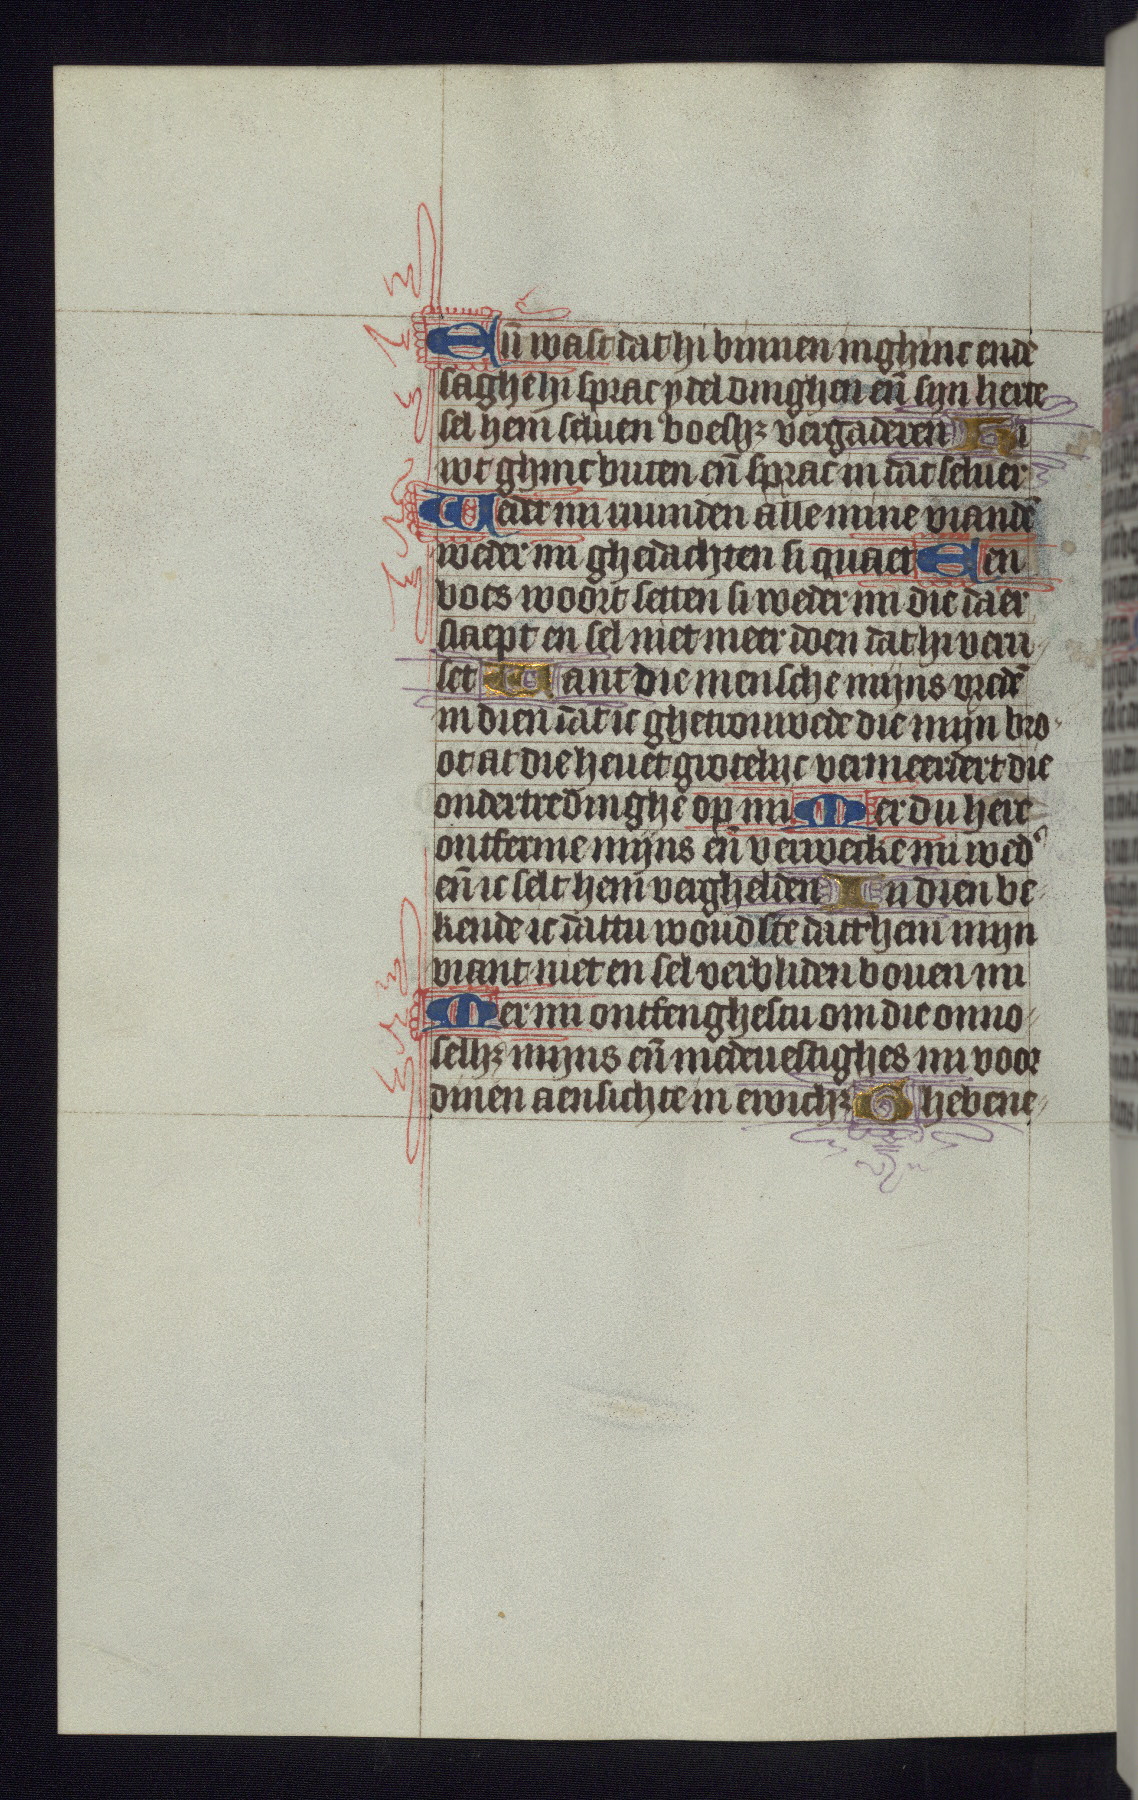 Eñ wast dat hi binnen in ghinc ende
saghe hi sprac ydel dinghen eñ sijn herte
sel hem seluen boeshꝫ vergaderen Hi
wt ghinc buten eñ sprac in dat seluer
Weder mi runden alle mine viandē
weder mi ghedachten si quaet Een
boes woort setten si weder mi die daer
slaept en sel niet meer doen dat hi verri
set Want die mensche mijns vredē
in dien dat ic ghetrouwede die mijn bro
ot at die heuet grotelijc vermeerdert die
ondertredinghe op mi Mer du here
ontferme mijns eñ verwecke mi wed᾽
eñ ic selt hem verghelden In dien be
kende ic dattu woudste datthem mijn
viant niet en sel verbliden bouen mi
Mer mi ontfenghestu om die onno
selhꝫ mijns eñ medeuestighes mi voor
dinen aensichte in ewichꝫ Ghebene